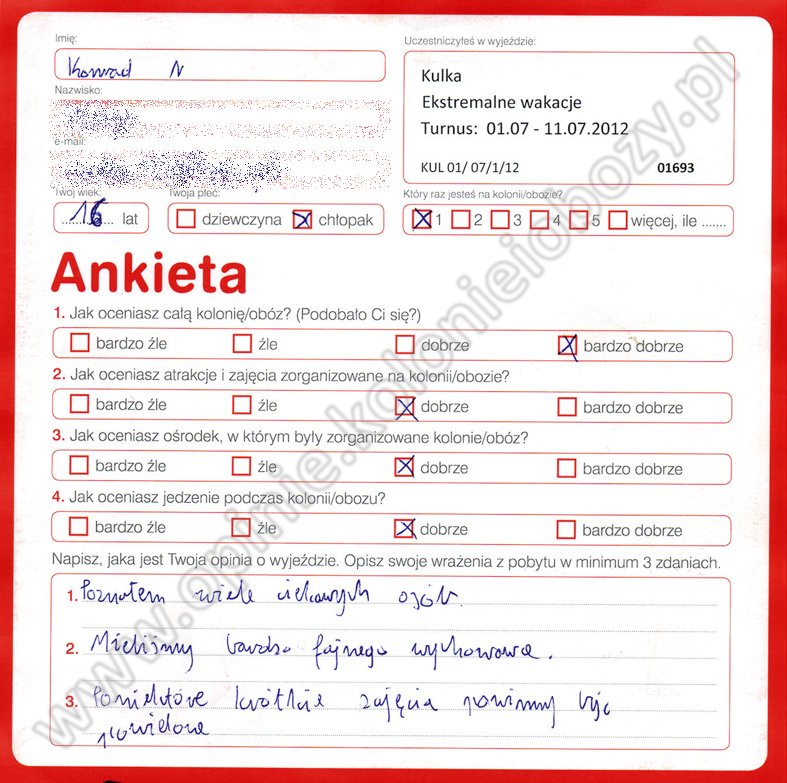 Imię:
Konrad N
Uczestniczyłeś w wyjeździe:
Kulka
Ekstremalne wakacje
Turnus: 01.07 - 11.07.2012
KUL 01/ 07/1/12 01693
Nazwisko:
e-mail:
Twój wiek:
16 lat
Twoja płeć:
dziewczyna chłopak
Który raz jesteś na kolonii/obozie?
1 2 3 4 5 więcej, ile .......
Ankieta
1. Jak oceniasz całą kolonię/obóz? (Podobało Ci się?)
bardzo źle źle dobrze bardzo dobrze
2. Jak oceniasz atrakcje i zajęcia zorganizowane na kolonii/obozie?
bardzo źle źle dobrze bardzo dobrze
3. Jak oceniasz ośrodek, w którym były zorganizowane kolonie/obóz?
bardzo źle źle dobrze bardzo dobrze
4. Jak oceniasz jedzenie podczas kolonii/obozu?
bardzo źle źle dobrze bardzo dobrze
Napisz, jaka jest Twoja opinia o wyjeździe. Opisz swoje wrażenia z pobytu w minimum 3 zdaniach.
1. Poznałem wiele ciekawych osób.
2. Mieliśmy bardzo fajnego wychowawcę.
3. krótkie zajęcia powinny być
www.opinie.kolonieiobozy.pl